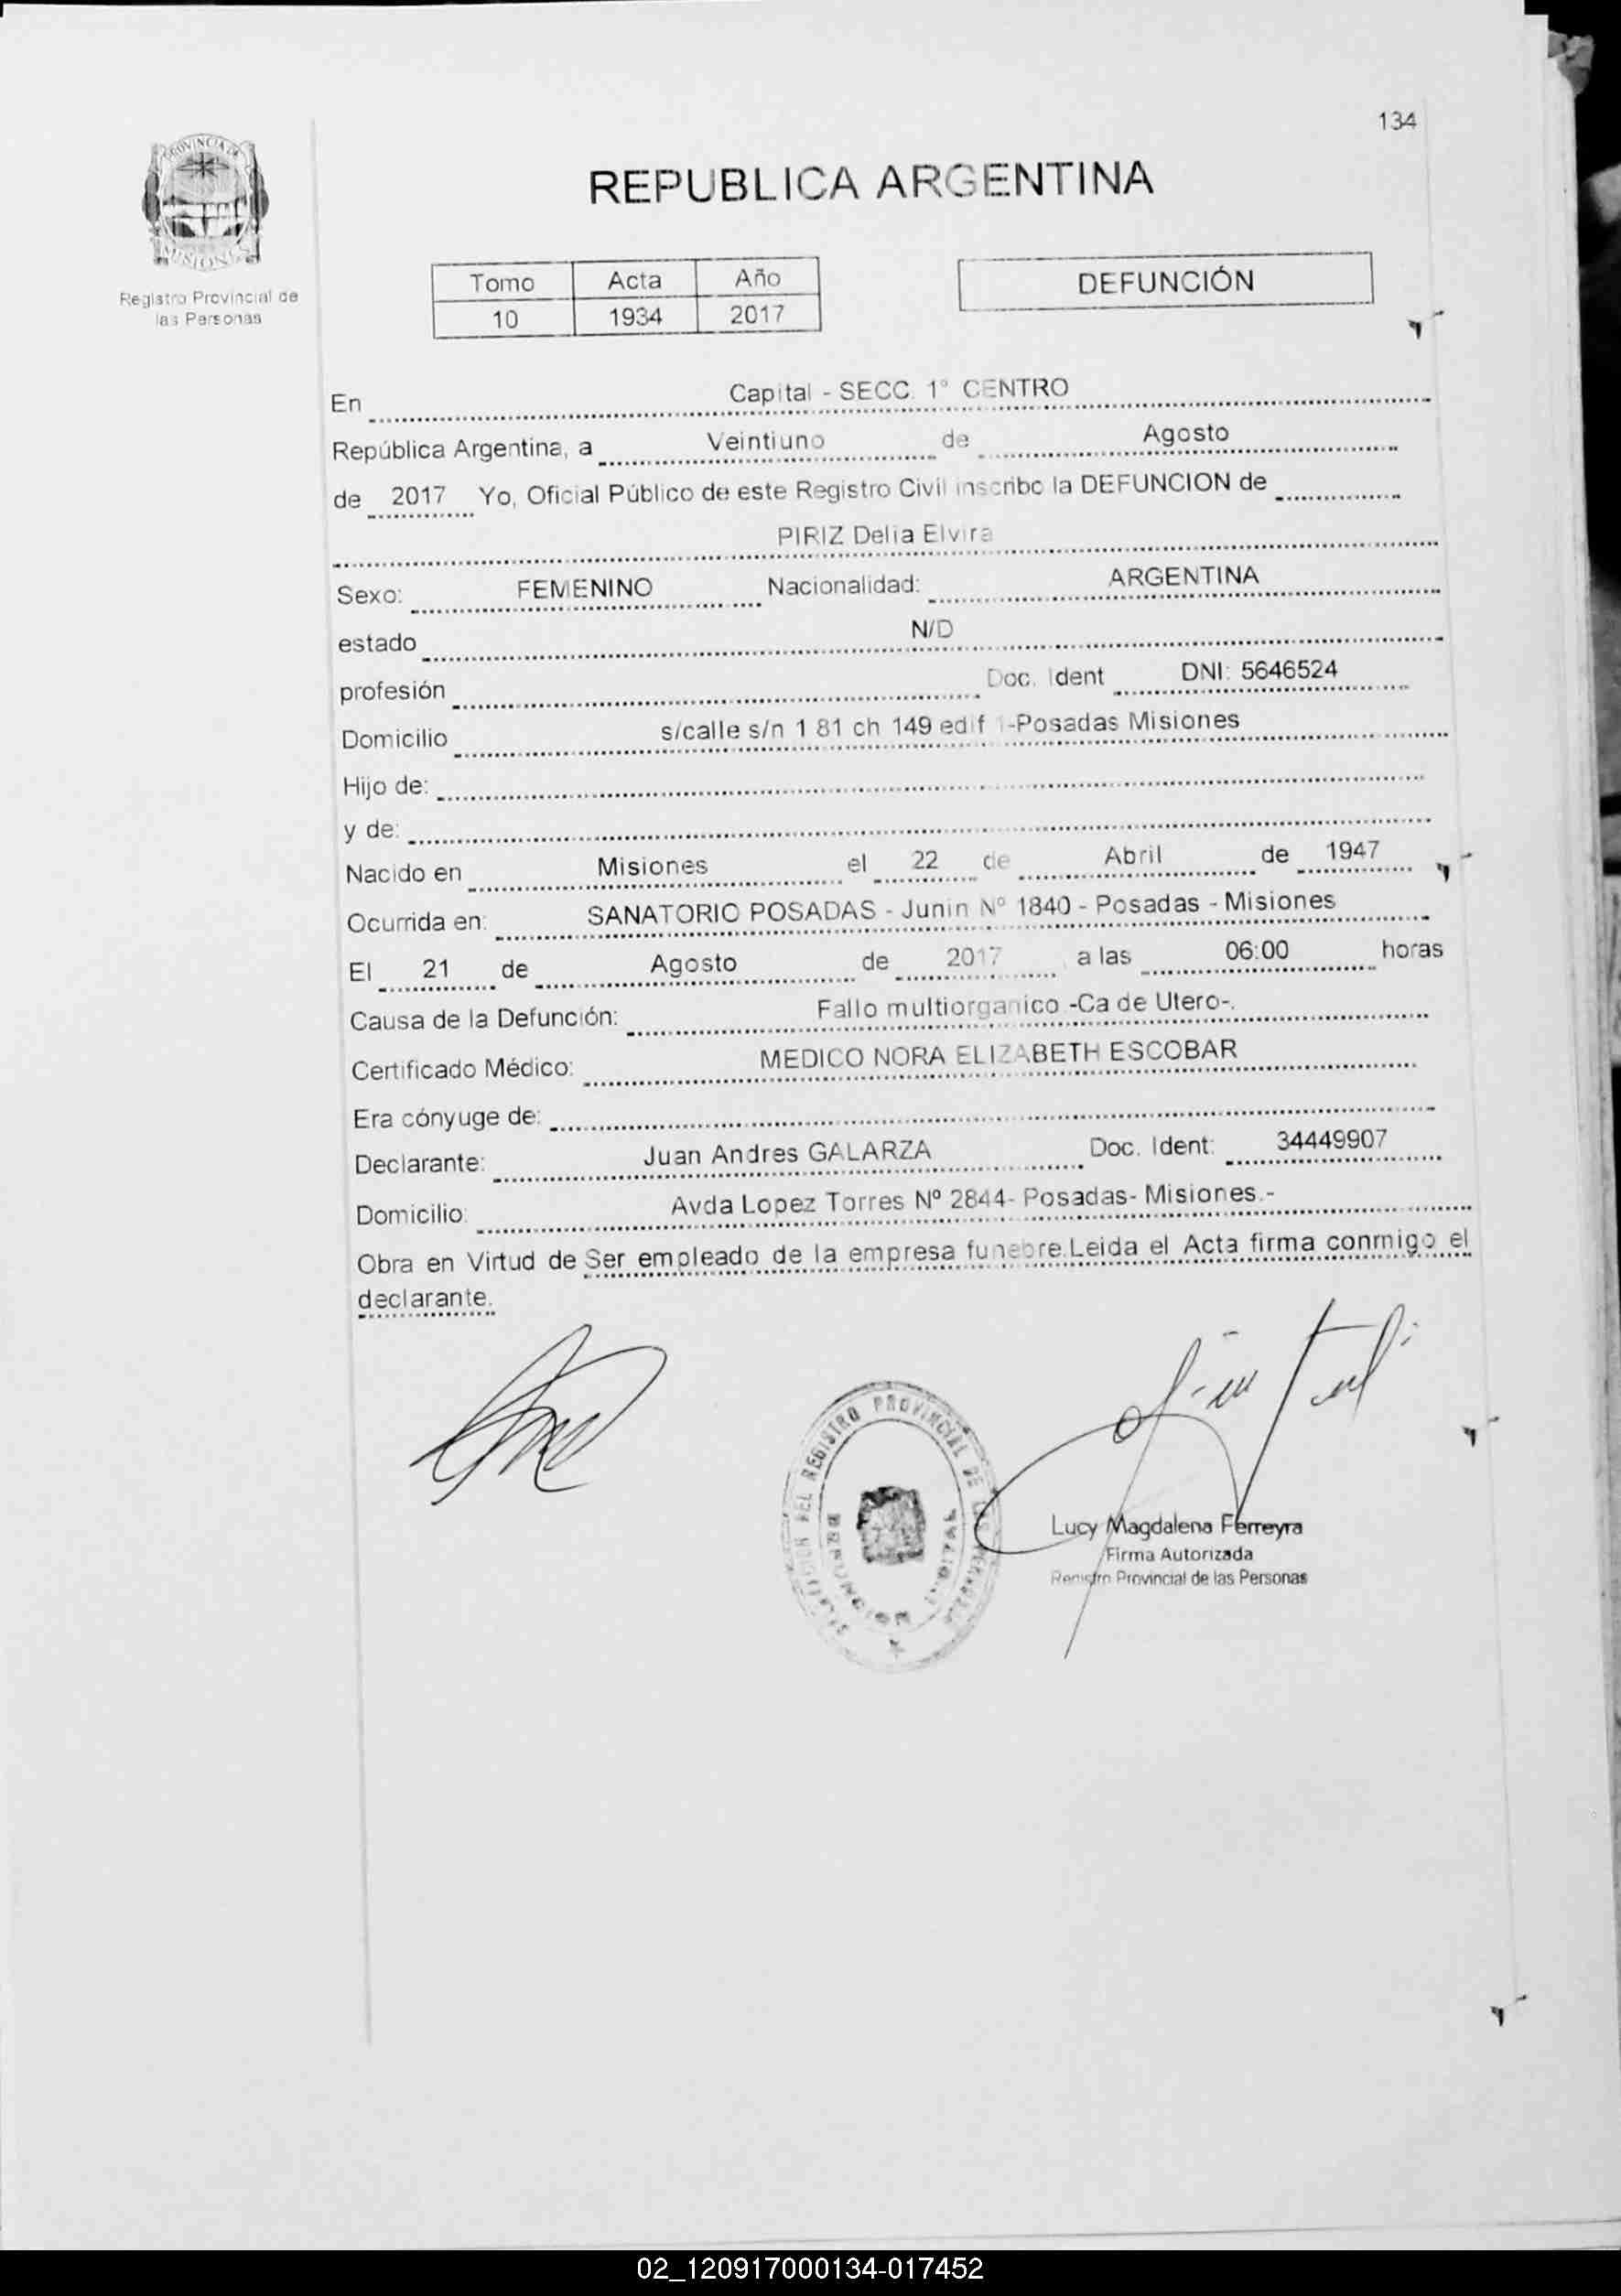 134
PROVINCIA DE
MISIONES
Registro Provincial de
las Personas
REPUBLICA ARGENTINA
Tomo Acta Año
10 1934 2017
DEFUNCIÓN
En Capital - SECC. 1° CENTRO
República Argentina, a Veintiuno de Agosto
de 2017 Yo, Oficial Público de este Registro Civil inscribo la DEFUNCION de
PIRIZ Delia Elvira
Sexo: FEMENINO Nacionalidad: ARGENTINA
estado N/D
profesión Doc. Ident DNI: 5646524
Domicilio s/calle s/n 1 81 ch 149 edif 1-Posadas Misiones
Hijo de:
y de:
Nacido en Misiones el 22 de Abril de 1947
Ocurrida en: SANATORIO POSADAS - Junin Nº 1840 - Posadas - Misiones
El 21 de Agosto de 2017 a las 06:00 horas
Causa de la Defunción: Fallo multiorganico -Ca de Utero-.
Certificado Médico: MEDICO NORA ELIZABETH ESCOBAR
Era cónyuge de:
Declarante: Juan Andres GALARZA Doc. Ident: 34449907
Domicilio: Avda Lopez Torres Nº 2844- Posadas- Misiones.-
Obra en Virtud de Ser empleado de la empresa funebre.Leida el Acta firma conmigo el
declarante.
REGISTRO PROVINCIAL DE
Lucy Magdalena Ferreyra
Firma Autorizada
Registro Provincial de las Personas
02_120917000134-017452